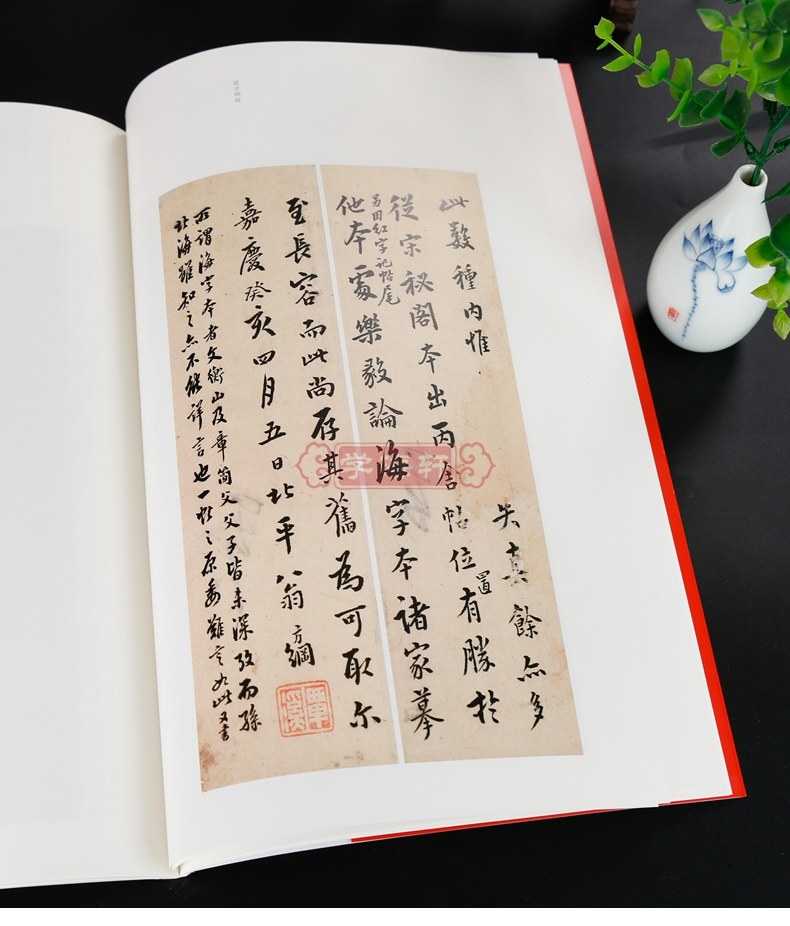 此數種內惟 失真餘亦多
從宋祕閣本出丙舍帖位置有勝於
紅字記帖尾
他本處樂毅論海字本諸家摹
至長容而此尚存其舊為可取尔
嘉慶癸亥四月五日北平翁方綱
所謂海字本者文衡山及章簡父父子皆未深攷而孫
北海雖知之亦不能詳言也一帖之原委難言如此又書
覃溪